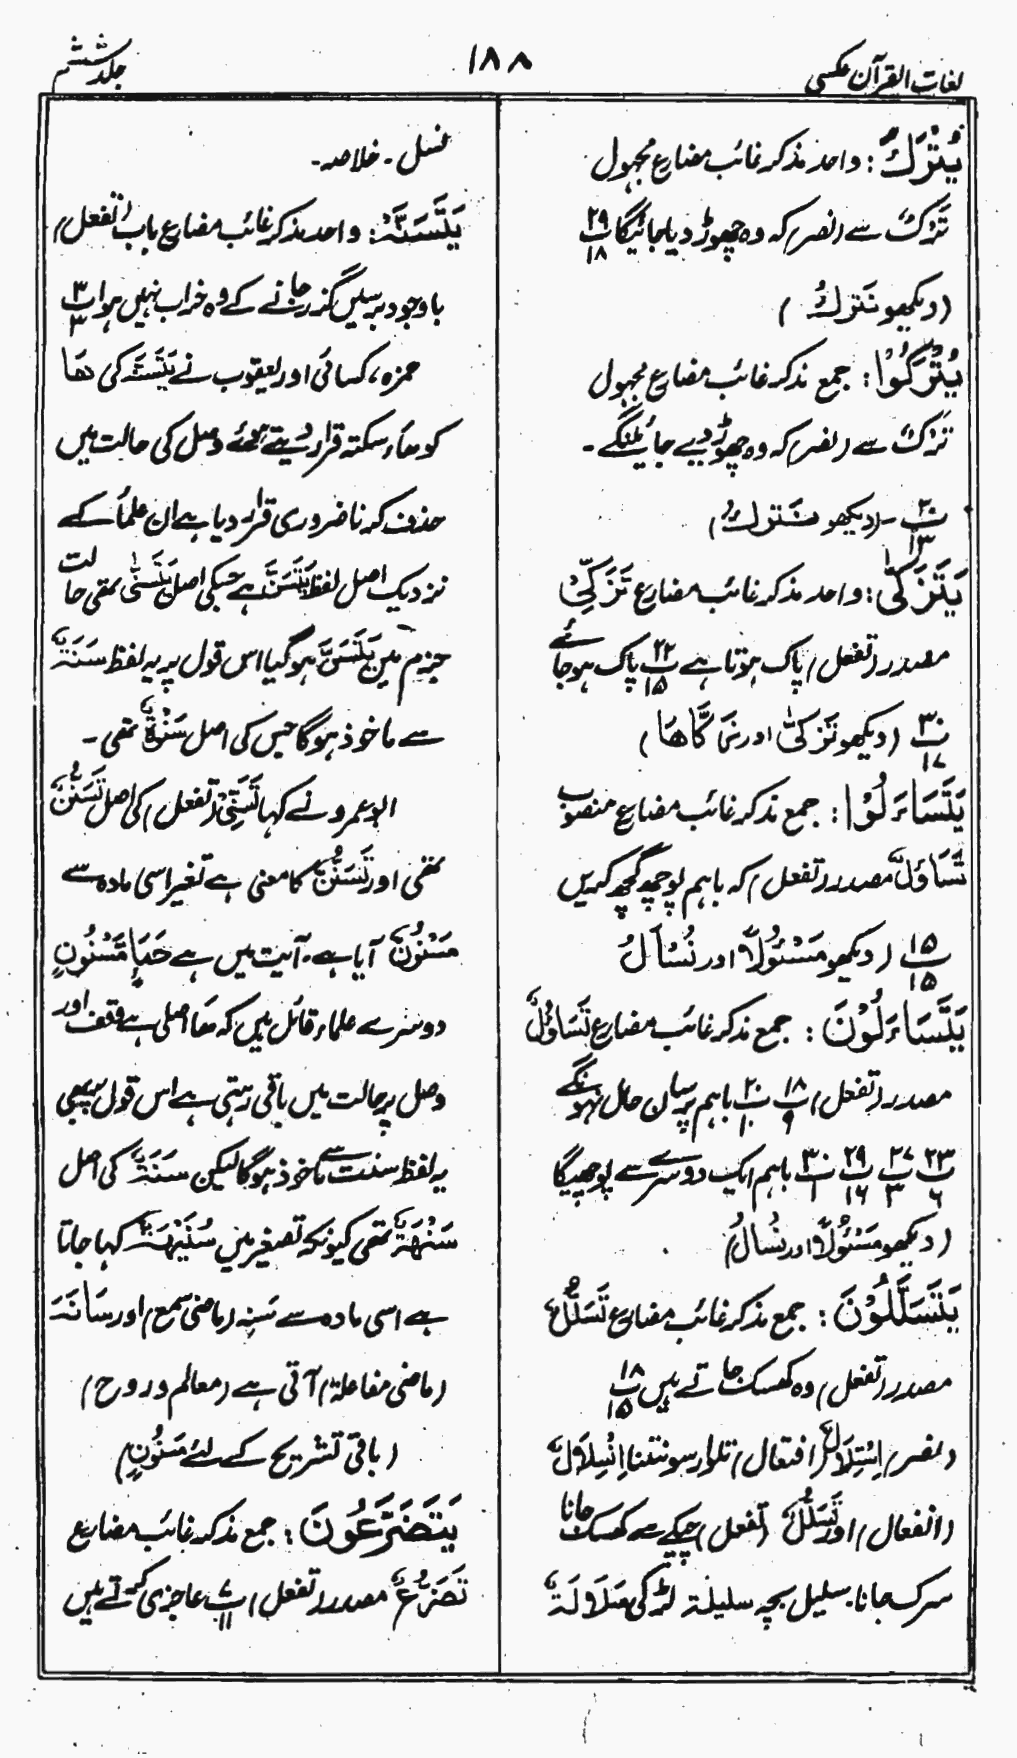 لغات القرآن عکسی
۱۸۸
جلد ششم
یُتْرَكُ : واحد مذکر غائب مضارع مجہول
تَرْكٌ سے (نصر) کہ وہ چھوڑ دیا جائیگا پ ۲۹ ۱۸
(دیکھو نَتْرُكُ)
یُتْرَكُوْا : جمع مذکر غائب مضارع مجہول
تَرْكٌ سے (نصر) کہ وہ چھوڑ دیے جائینگے۔
پ ۲۰ ۱۳ ۔ (دیکھو نَتْرُكُ)
یَتَزَكّٰى : واحد مذکر غائب مضارع تَزَكِّیْ
مصدر (تفعل) پاک ہوتا ہے پ ۲۲ ۱۵ پاک ہو جائے
پ ۳۰ ۱۷ (دیکھو تَزَكّٰى اور زَكَّاهَا)
یَتَسَاءَلُوْا : جمع مذکر غائب مضارع منصوب
تَسَاؤُلٌ مصدر (تفعل) کہ باہم پوچھ گچھ کریں
پ ۱۵ ۱۵ (دیکھو مَسْئُوْلًا اور نُسْأَلُ
یَتَسَاءَلُوْنَ : جمع مذکر غائب مضارع تَسَاؤُلٌ
مصدر (تفعل) پ ۱۸ ۹ پ ۲۰ ۱۰ باہم پرسان حال نہونگے
پ ۲۳ ۶ پ ۲۷ ۳ پ ۲۹ ۱۶ پ ۳۰ ۱ باہم ایک دوسرے سے پوچھیگا
(دیکھو مَسْئُوْلًا اور نُسْأَلُ)
یَتَسَلَّلُوْنَ : جمع مذکر غائب مضارع تَسَلُّلٌ
مصدر (تفعل) وہ کھسک جاتے ہیں پ ۱۸ ۱۵
(نصر) اِسْتِلَالٌ (افتعال) تلوار سونتنا اِنْسِلَالٌ
(انفعال) اور تَسَلُّلٌ (تفعل) چپکے سے کھسک جانا
سرک جانا۔ سلیل بچہ سلیلۃ لڑکی سَلَالَۃٌ
نسل۔ خلاصہ۔
یَتَسَنَّهْ : واحد مذکر غائب مضارع باب (تفعل)
باوجود برسیں گذر جانے کے وہ خراب نہیں ہوا پ ۳ ۳
حمزہ، کسائی اور یعقوب نے یَتَسَنَّہ کی ھَا
کو ھاء سکتہ قرار دیتے ہوئے وصل کی حالت میں
حذف کرنا ضروری قرار دیا ہے ان علماء کے
نزدیک اصل لفظ یَتَسَنَّ ہے جسکی اصل یَتَسَنّٰى تھی حالت
جزم میں یَتَسَنَّ ہو گیا اس قول پر یہ لفظ سَنَۃٌ
سے ماخوذ ہوگا جس کی اصل سَنْوَۃٌ تھی۔
ابو عمرو نے کہا تَسَنِّیْ (تفعل) کی اصل تَسَنُّنٌ
تھی اور تَسَنُّنٌ کا معنی ہے تغیر اسی مادہ سے
مَسْنُوْنٌ آیا ہے۔ آیت میں ہے حَمَإٍ مَّسْنُوْنٍ
دوسرے علماء قائل ہیں کہ ھا اصلی ہے وقف اور
وصل ہر حالت میں باقی رہتی ہے اس قول پر بھی
یہ لفظ سنت سے ماخوذ ہوگا لیکن سَنَۃٌ کی اصل
سَنْهَۃٌ تھی کیونکہ تصغیر میں سُنَیْهَۃٌ کہا جاتا
ہے اسی مادہ سے سَنِہَ (ماضی سمع) اور سَانَہَ
(ماضی مفاعلۃ) آتی ہے (معالم و روح)
(باقی تشریح کے لئے مَسْنُوْنٍ)
یَتَضَرَّعُوْنَ : جمع مذکر غائب مضارع
تَضَرُّعٌ مصدر (تفعل) پ ۷ ۱۱ عاجزی کرتے ہیں